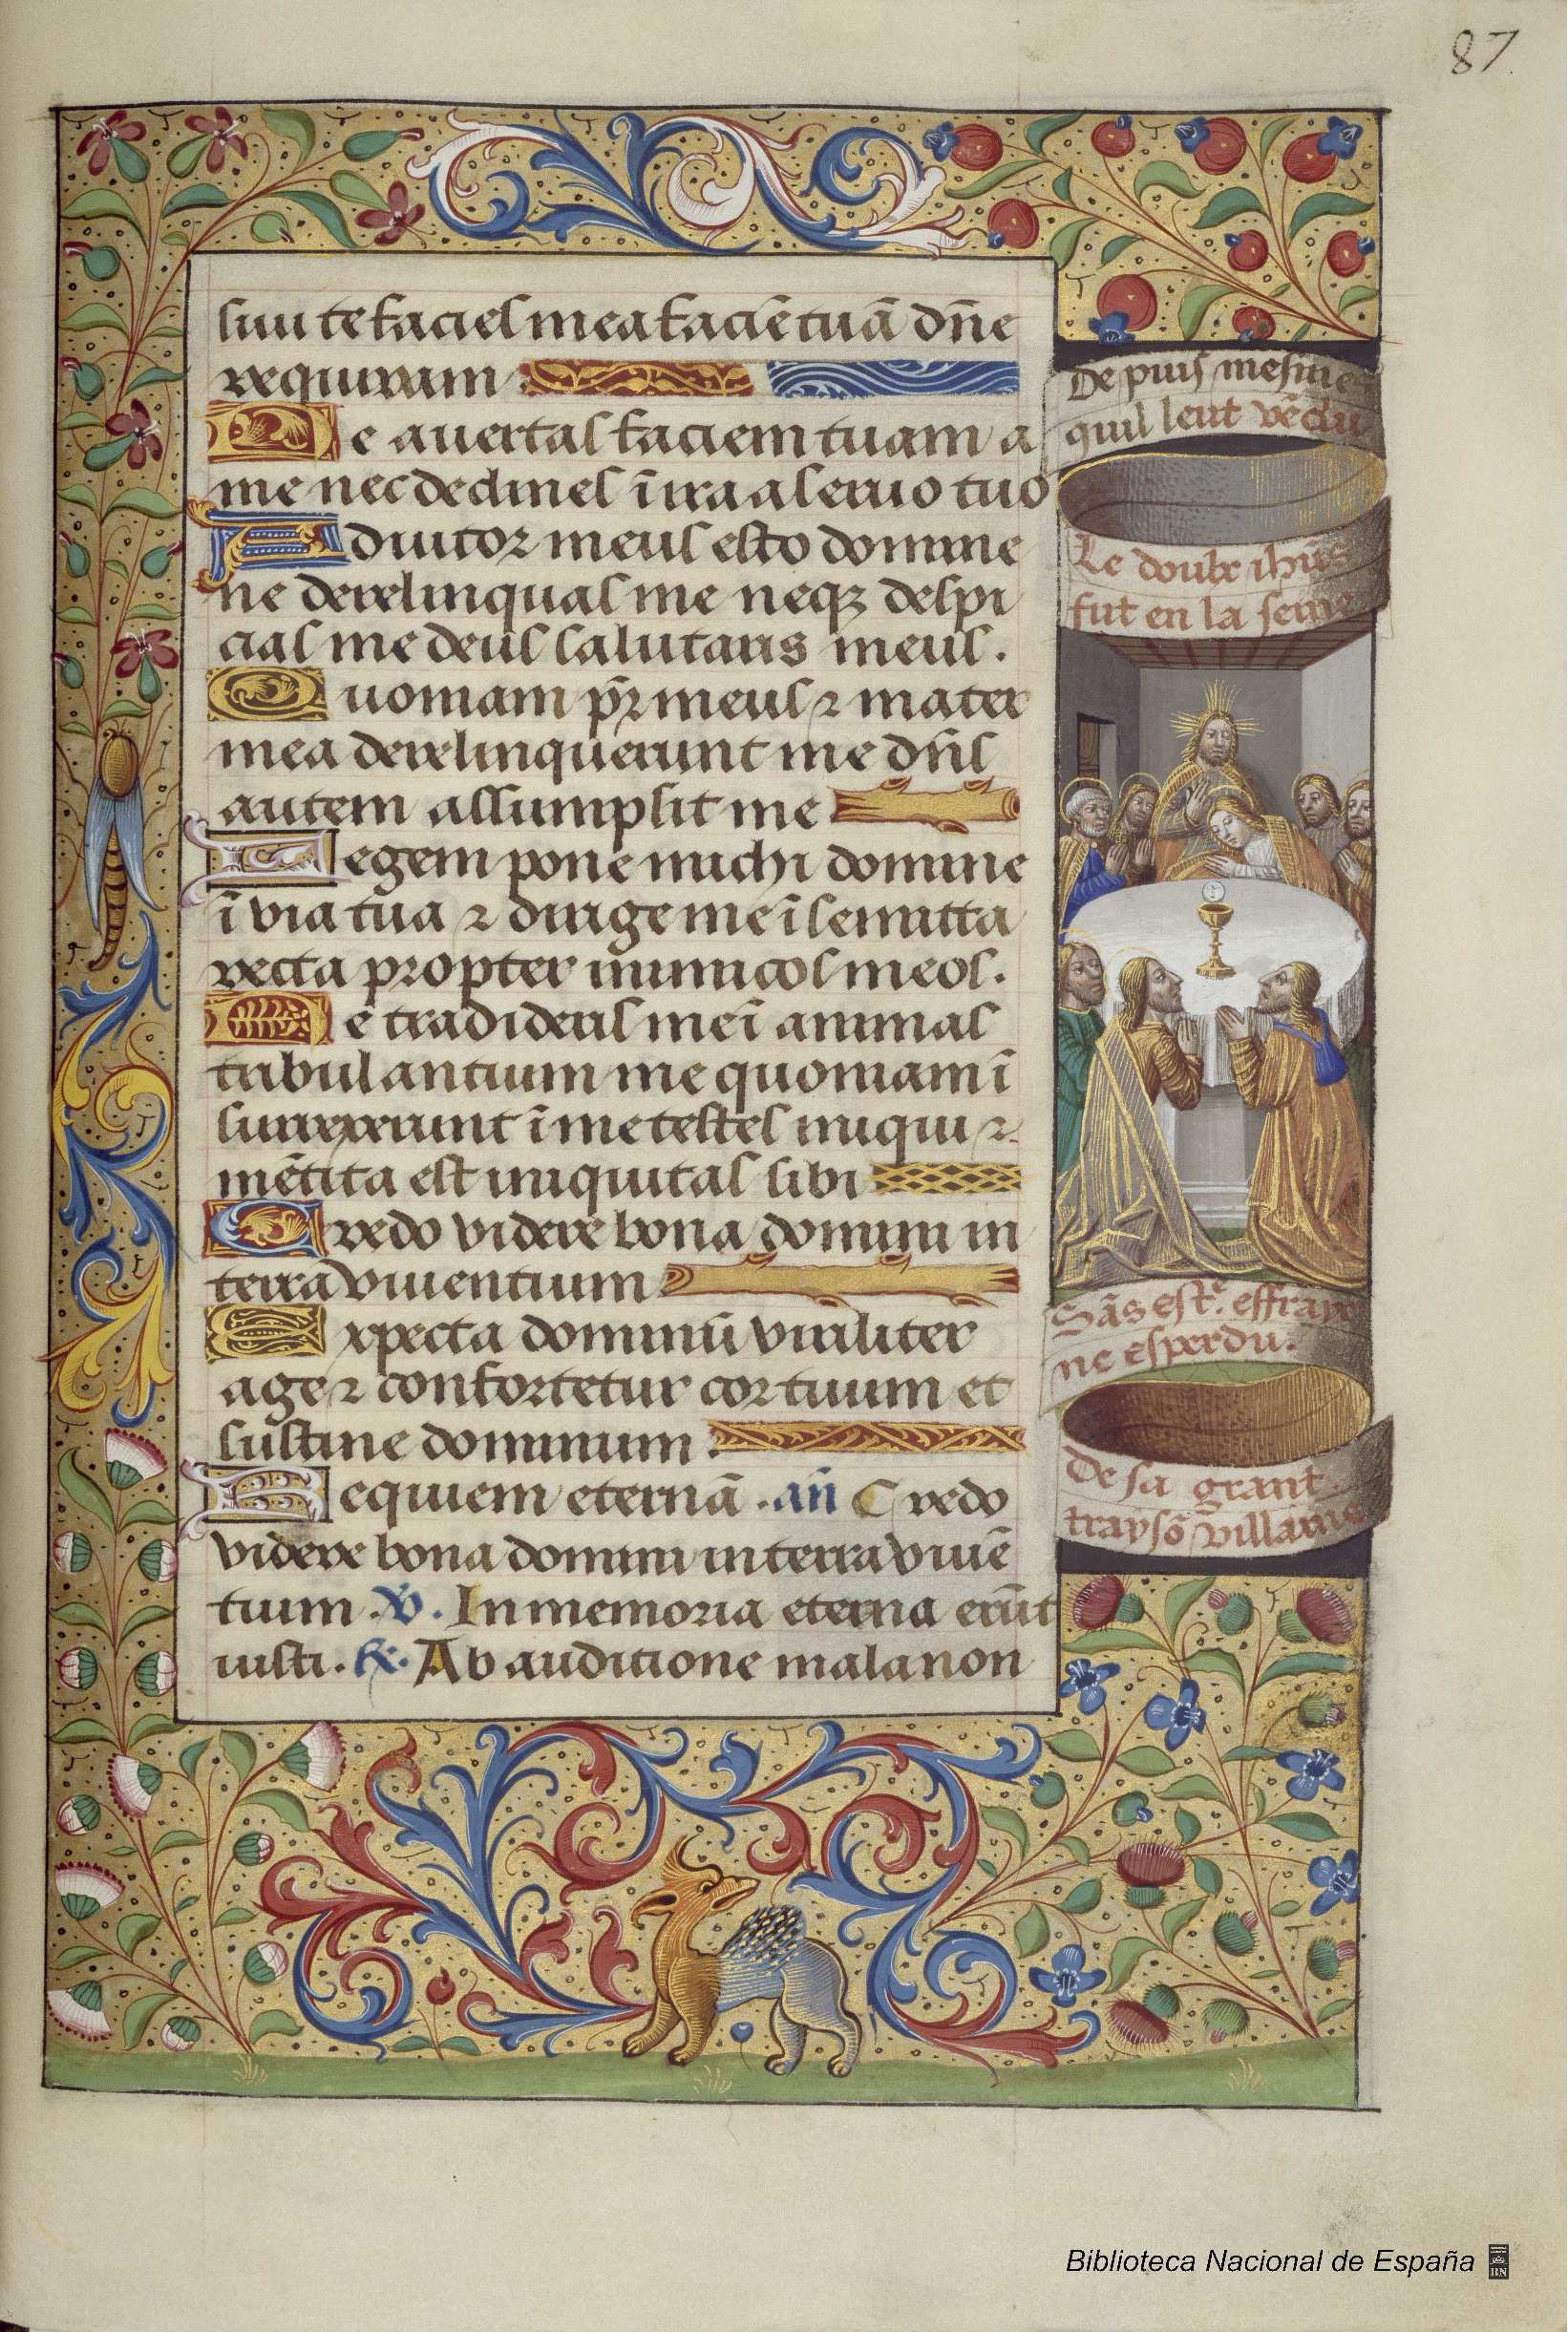 87.
siuit te facies mea faciē tuā dn̄e
requiram
Ne auertas faciem tuam a
me nec declines ī ira a seruo tuo
Adiutor meus esto domine
ne derelinquas me neqꝫ despi
cias me deus salutaris meus.
Quoniam pr̄ meus ⁊ mater
mea derelinquerunt me dn̄s
autem assumpsit me
Legem pone michi domine
ī via tua ⁊ dirige me ī semitta
recta propter inimicos meos.
Ne tradideris me ī animas
tribulantium me quoniam ī
surrexerunt ī me testes iniqui ⁊
mētita est iniquitas sibi
Credo videre bona domini in
terra viuentium
Expecta dominū viriliter
age ⁊ confortetur cor tuum et
sustine dominum.
Requiem eternā. an̄ Credo
videre bona domini in terra viuē
tium. ℣. In memoria eterna erūt
iusti. ℟. Ab auditione mala non
De puis mesme
quil leut vēdu
Le doulx ihūs
fut en la sene
Sās estr̄ effraye
ne esperdu.
De sa grant
traysō villaine
Biblioteca Nacional de España
BN